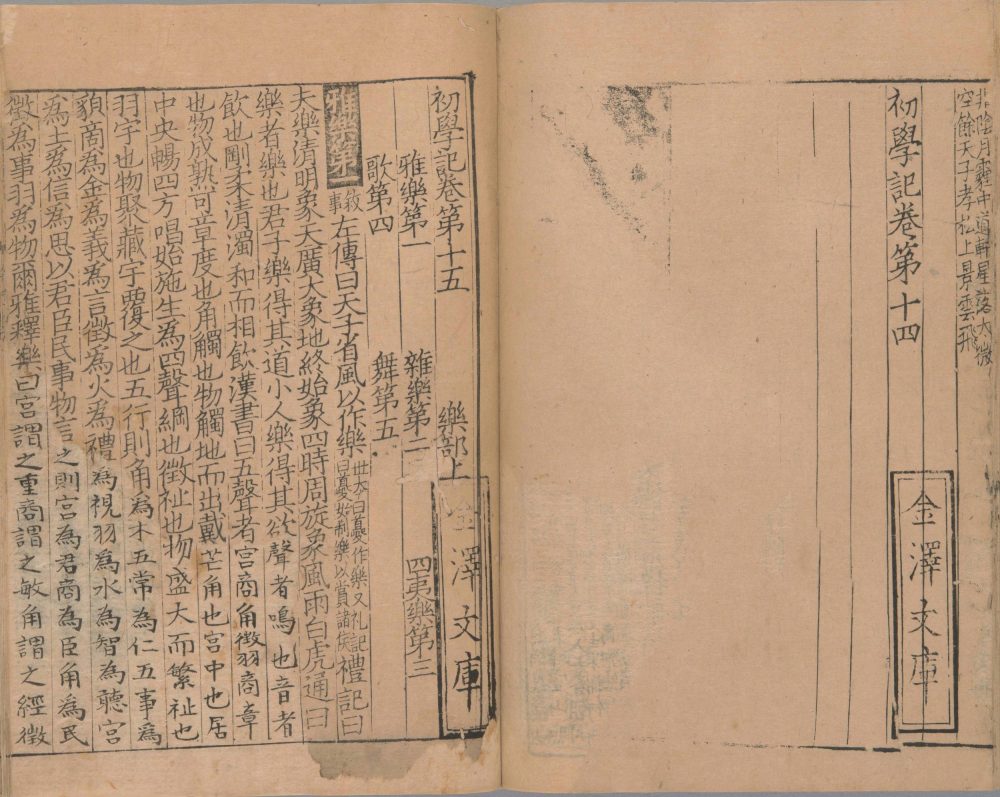 非陰月虧中道軒星落大微
空餘天子孝松上景雲飛
初學記卷第十四
金澤文庫
初學記卷第十五 樂部上
金澤文庫
雅樂第一 雜樂第二 四夷樂第三
歌第四 舞第五
雅樂第一 敘事 左傳曰天子省風以作樂 世本曰夔作樂又礼記曰夔始制樂以賞諸侯 禮記曰
夫樂清明象天廣大象地終始象四時周旋象風雨白虎通曰
樂者樂也君子樂得其道小人樂得其欲聲者鳴也音者
飲也剛柔清濁和而相飲漢書曰五聲者宮商角徵羽商章
也物成熟可章度也角觸也物觸地而出戴芒角也宮中也居
中央暢四方唱始施生為四聲綱也徵祉也物盛大而繁祉也
羽宇也物聚藏宇覆之也五行則角為木五常為仁五事為
貌商為金為義為言徵為火為禮為視羽為水為智為聽宮
為土為信為思以君臣民事物言之則宮為君商為臣角為民
徵為事羽為物爾雅釋樂曰宮謂之重商謂之敏角謂之經徵